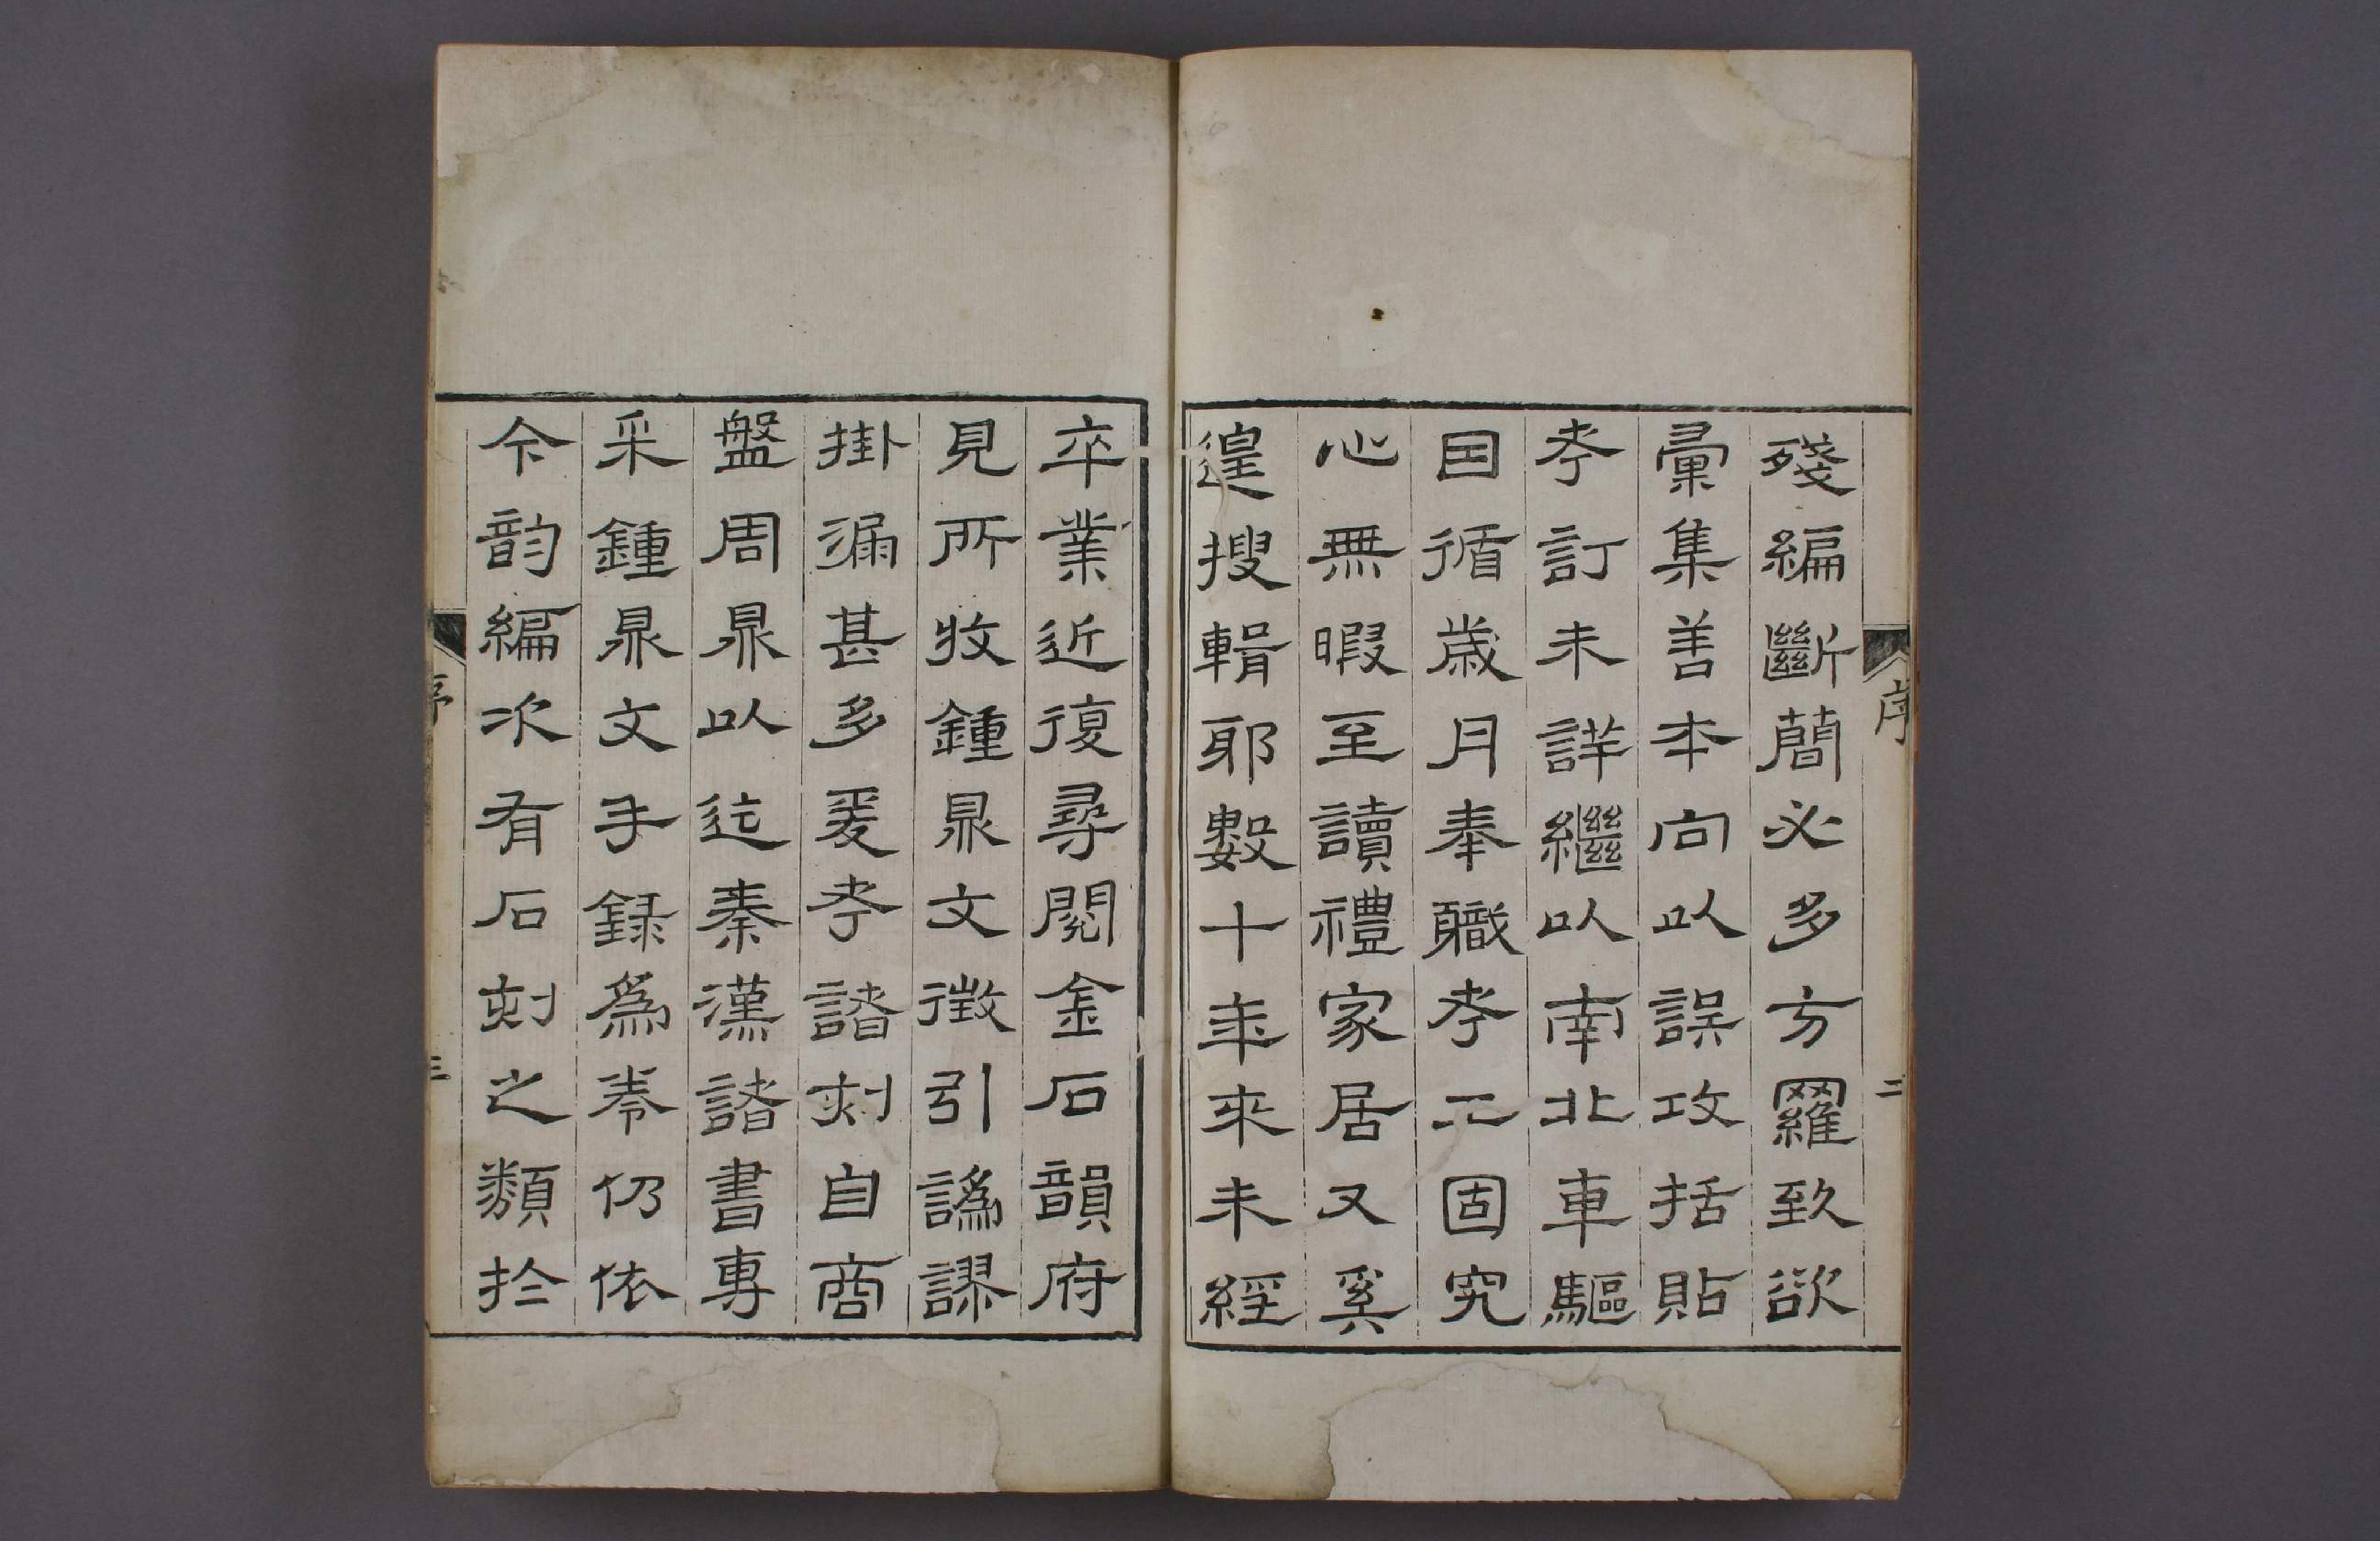 殘編斷簡必多方羅致欲
彙集善本向以誤攻括貼
考訂未詳繼以南北車驅
因循歲月奉職考工固究
心無暇至讀禮家居又奚
遑搜輯耶數十年來未經
卒業近復尋閱金石韻府
見所收鍾鼎文徵引譌謬
掛漏甚多爰考諸刻自商
盤周鼎以迄秦漢諸書專
采鍾鼎文手錄為卷仍依
今韵編次有石刻之類於
序
二
序
三